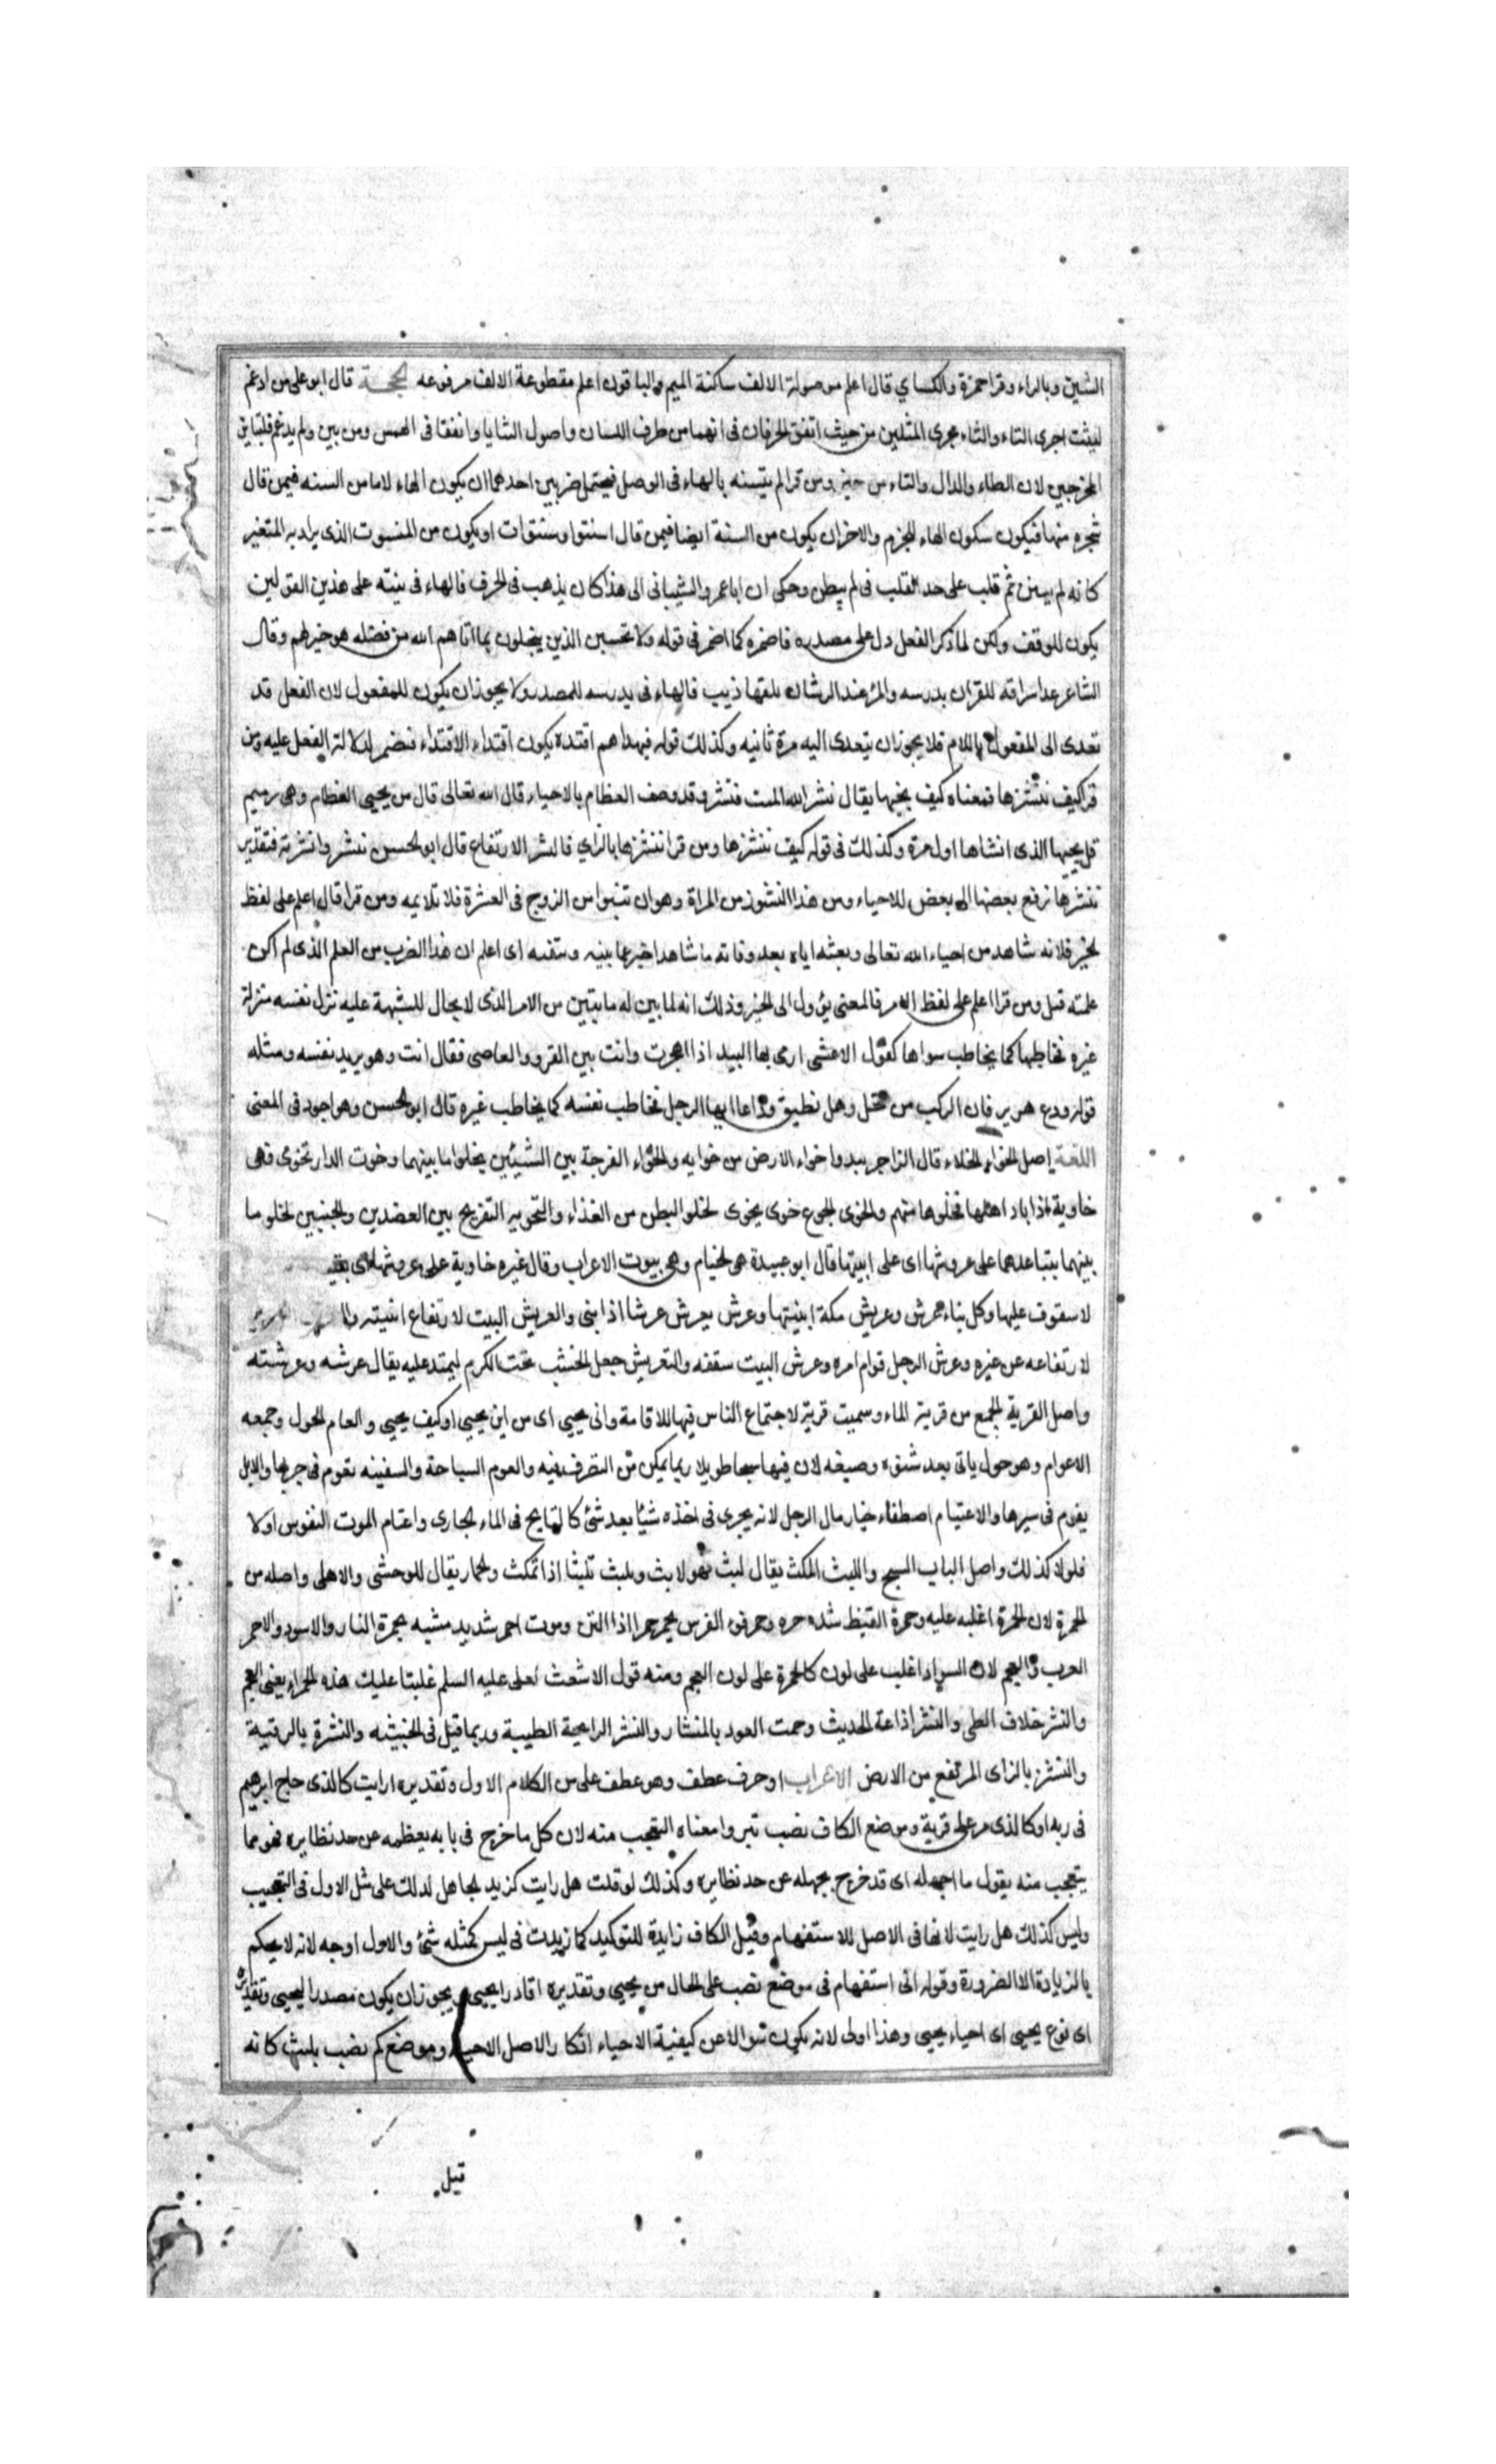 الشين وبالراء وقرا حمزة والكساي قال اعلم موصولة الالف ساكنة الميم والباقون اعلم مقطوعة الالف مرفوعه الحجـــة قال ابو على من ادغم
لبثت اجرى التاء والثاء مجرى المثلين من حيث اتفق الحرفان فى انهما من طرف اللسان واصول الثنايا واتفقا فى الهمس ومن بين ولم يدغم فلتباين
المخرجين لان الطاء والدال والتاء من حيز ومن قرا لم يتسنه بالهاء فى الوصل فيحتمل ضربين احدهما ان يكون الهاء لاما من السنه فيمن قال
شجره سنهاء فيكون سكون الهاء للجزم والاخر ان يكون من السنة ايضا فيمن قال اسنتوا وسنوات او يكون من المسنون الذى يراد به المتغير
كانه لم يتسنن ثم قلب على حد القلب فى لم يتظن وحكى ان ابا عمرو الشيبانى الى هذا كان يذهب فى الحرف فالهاء فى يتسنه على هذين القولين
يكون للوقف ولكن لما ذكر الفعل دل على مصدره فاضمره كما اضمر فى قوله ولا تحسبن الذين يبخلون بما اتاهم الله من فضله هو خير لهم وقال
الشاعر هذا سراقة للقران يدرسه والمرء عند الرشان يلقها ذيب فالهاء فى يدرسه للمصدر ولا يجوز ان يكون للمفعول لان الفعل قد
تعدى الى المفعول باللام فلا يجوز ان يتعدى اليه مرة ثانيه وكذلك قوله فبهداهم اقتده يكون اقتداء الاقتداء فيضمر لدلالة الفعل عليه ومن
قرا كيف ننشرها فمعناه كيف يحييها يقال نشر الله الميت فنشر وقد وصف العظام بالاحياء قال الله تعالى قال من يحيى العظام وهى رميم
قل يحييها الذى انشاها اول مرة وكذلك فى قوله كيف ننشرها ومن قرا ننشزها بالزاي فالنشز الارتفاع قال ابو الحسن نشز وانشزته فتقدير
ننشزها نرفع بعضها الى بعض للاحياء ومن هذا النشوز من المراة وهو ان تنبوا من الزوج فى العشرة فلا تلايمه ومن قرا قال اعلم على لفظ
الخبر فلانه شاهد من احياء الله تعالى وبعثه اياه بعد وفاته ما شاهد اخبر عما يتيقنه اى اعلم ان هذا الضرب من العلم الذى لم اكن
علمته قبل ومن قرا اعلم على لفظ الامر فالمعنى يؤول الى الخبر وذلك انه لما بين له ما يتبين من الامر الذى لا مجال للشبهة عليه نزل نفسه منزلة
غيره فخاطبها كما يخاطب سواها كقول الاعشى ارى بها البيد اذا اهجرت وانت بين القرو والعاصى فقال انت وهو يريد نفسه ومثله
قوله ودع هريره فان الركب مرتحل وهل تطيق وداعا ايها الرجل فخاطب نفسه كما يخاطب غيره قال ابو الحسن وهو اجود فى المعنى
اللغـة اصل الخواء الخلاء قال الزاجر يبدوا خواء الارض من خوايه والخواء الفرجة بين الشيئين يخلوا ما بينهما وخوت الدار تخوى فهى
خاوية اذا باد اهلها تخلوها منهم والخوى الجوع خوى يخوى لخلو البطن من الغذاء والتخويه التفريج بين العضدين والجنبين لخلو ما
بينهما بتباعدهما على عروشها اى على ابنيتها قال ابو عبيدة هى الخيام وهى بيوت الاعراب وقال غيره خاوية على عروشها اى بقيت
لا سقوف عليها وكل بناء عرش وعريش مكة ابنيتها وعرش يعرش عرشا اذا بنى والعريش البيت لارتفاع ابنيته
لارتفاعه عن غيره وعرش الرجل قوام امره وعرش البيت سقفه والتعريش جعل الخشب تحت الكرم ليمتد عليه يقال عرشه وعرشته
واصل القرية الجمع من قريت الماء وسميت قرية لاجتماع الناس فيها للاقامة وانى يحيى اى من اين يحيى او كيف يحيى والعام الحول وجمعه
الاعوام وهو حول ياتى بعد شتوه وصيفه لان فيها سبحا طويلا ربما يمكن من التصرف فيه والعوم السباحة والسفينه تعوم فى جريها والابل
يعوم فى سيرها والاعتيام اصطفاء خيار مال الرجل لانه يجرى فى اخذه شيئا بعد شئ كالسابح فى الماء الجارى واعتام الموت النفوس اولا
فاولا كذلك واصل الباب السبح واللبث المكث يقال لبث فهو لابث وتلبث تلبثا اذا تمكث والحمار يقال للوحشى والاهلى واصله من
الحمرة لان الحمرة اغلبه عليه وحمرة القيظ شده حره وحمر فو الفرس يحمر حمرا اذا انتن وموت احمر شديد مشبه بحمرة النار والاسود والاحمر
العرب والعجم لان السواد اغلب على لون كالحمرة على لون العجم ومنه قول الاشعث لعلى عليه السلم غلبتنا عليك هذه الحمراء يعنى العجم
والنشر خلاف الطى والنشر اذاعة الحديث ونحت العود بالمنشار والنشر الرايحة الطيبة وربما قيل فى الخبيثه والنشرة بالرقية
والنشز بالزاى المرتفع من الارض الاعراب او حرف عطف وهو عطف على من الكلام الاول وتقديره ارايت كالذى حاج ابرهيم
فى ربه او كالذى مر على قرية وموضع الكاف نصب بتر وا معناه التعجب منه لان كل ما خرج فى بابه بعظمه عن حد نظايره فهو مما
يتعجب منه يقول ما اجهله اى قد خرج بجهله عن حد نظايره وكذلك لو قلت هل رايت كزيد الجاهل لدللت على مثل الاول فى التعجيب
وليس كذلك هل رايت لانها فى الاصل للاستفهام وقيل الكاف زايدة للتوكيد كما زيدت فى ليس كمثله شئ والاول اوجه لانه لا يحكم
بالزيادة الا لضرورة وقوله انى استفهام فى موضع نصب على الحال من يحيى وتقديره اقادرا يحيى و يجوز ان يكون مصدرا ليحيى وتقديره
اى نوع يحيى اى احياء يحيى وهذا اولى لانه يكون سوالا عن كيفية الاحياء انكارا لاصل الاحياء وموضع كم نصب بلبثت كانه
قيل